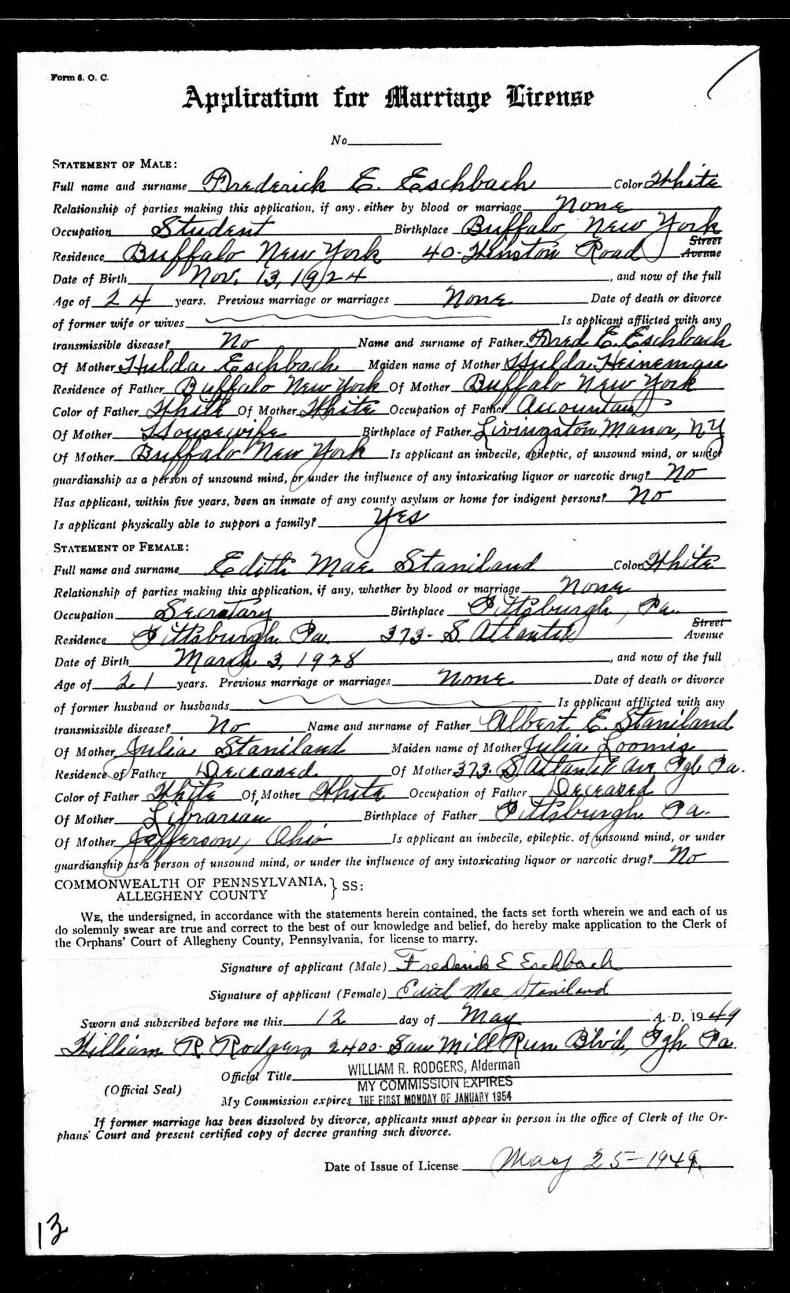 Form 6. O. C.
Application for Marriage License
No
STATEMENT OF MALE:
Full name and surname Frederick E. Eschbach Color White
Relationship of parties making this application, if any, either by blood or marriage None
Occupation Student Birthplace Buffalo, New York
Residence Buffalo New York 40- Road Street Avenue
Date of Birth Nov. 13, 1924, and now of the full
Age of 24 years. Previous marriage or marriages None Date of death or divorce
of former wife or wives Is applicant afflicted with any
transmissible disease? No Name and surname of Father Fred E. Eschbach
Of Mother Hulda Eschbach Maiden name of Mother Hulda Heineman
Residence of Father Buffalo New York Of Mother Buffalo New York
Color of Father White Of Mother White Occupation of Father Accountant
Of Mother Housewife Birthplace of Father Livingston Manor, NY
Of Mother Buffalo New York Is applicant an imbecile, epileptic, of unsound mind, or under
guardianship as a person of unsound mind, or under the influence of any intoxicating liquor or narcotic drug? No
Has applicant, within five years, been an inmate of any county asylum or home for indigent persons? No
Is applicant physically able to support a family? Yes
STATEMENT OF FEMALE:
Full name and surname Edith Mae Staniland Color White
Relationship of parties making this application, if any, whether by blood or marriage None
Occupation Secretary Birthplace Pittsburgh, Pa.
Residence Pittsburgh Pa 373- S. Atlantic Street Avenue
Date of Birth March 3, 1928, and now of the full
Age of 21 years. Previous marriage or marriages None Date of death or divorce
of former husband or husbands Is applicant afflicted with any
transmissible disease? No Name and surname of Father Albert E. Staniland
Of Mother Julia Staniland Maiden name of Mother Julia Loomis
Residence of Father Deceased Of Mother 373 S Atlantic Ave Pgh Pa.
Color of Father White Of Mother White Occupation of Father Deceased
Of Mother Librarian Birthplace of Father Pittsburgh Pa.
Of Mother Jefferson, Ohio Is applicant an imbecile, epileptic, of unsound mind, or under
guardianship as a person of unsound mind, or under the influence of any intoxicating liquor or narcotic drug? No
COMMONWEALTH OF PENNSYLVANIA, } SS:
ALLEGHENY COUNTY
WE, the undersigned, in accordance with the statements herein contained, the facts set forth wherein we and each of us
do solemnly swear are true and correct to the best of our knowledge and belief, do hereby make application to the Clerk of
the Orphans' Court of Allegheny County, Pennsylvania, for license to marry.
Signature of applicant (Male) Frederick E Eschbach
Signature of applicant (Female) Edith Mae Staniland
Sworn and subscribed before me this 12 day of May A. D. 1949
William R. Rodgers 2400- Saw Mill Run Blvd, Pgh Pa.
Official Title WILLIAM R. RODGERS, Alderman
MY COMMISSION EXPIRES
(Official Seal)
My Commission expires THE FIRST MONDAY OF JANUARY 1954
If former marriage has been dissolved by divorce, applicants must appear in person in the office of Clerk of the Or-
phans' Court and present certified copy of decree granting such divorce.
Date of Issue of License May 25-1949.
13